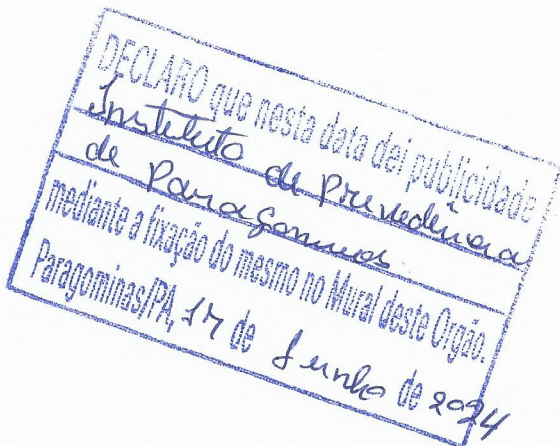 DECLARO que nesta data dei publicidade
Instituto de Previdência
de Paragominas
mediante a fixação do mesmo no Mural deste Orgão.
Paragominas/PA, 17 de Junho de 2024